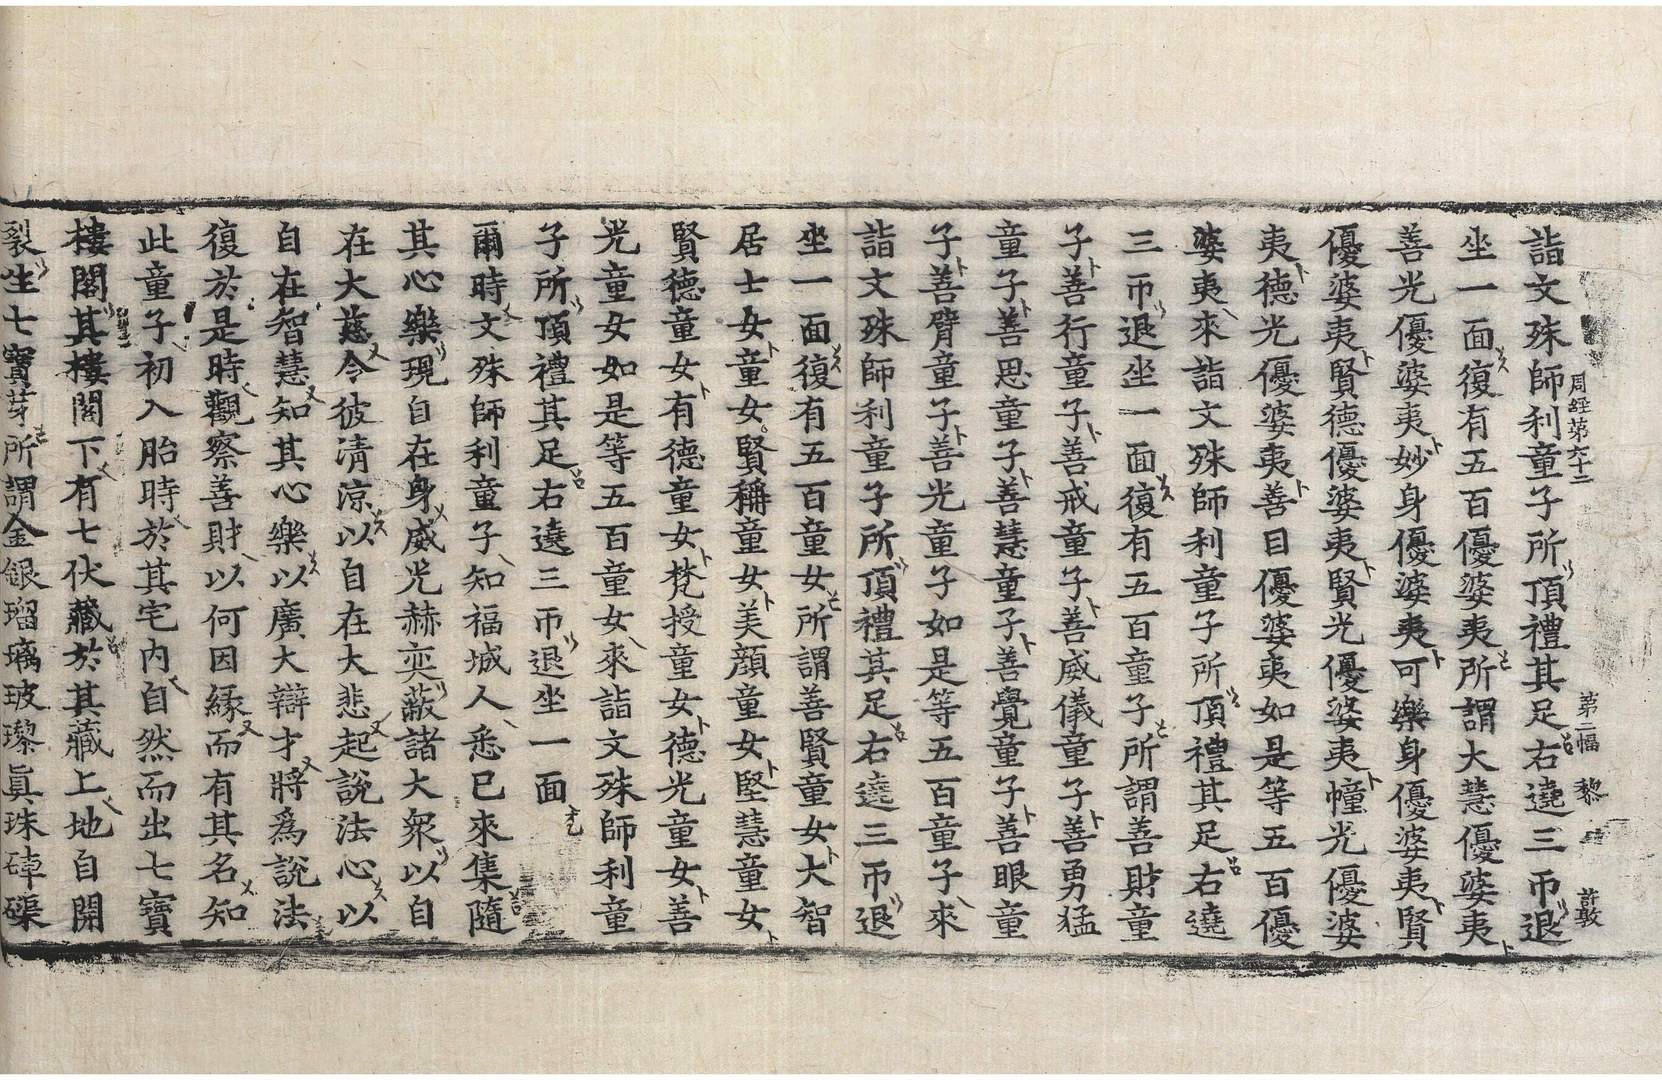 周經第六十二 第二幅 黎 許敦
詣文殊師利童子所頂禮其足右遶三帀退
坐一面復有五百優婆夷所謂大慧優婆夷
善光優婆夷妙身優婆夷可樂身優婆夷賢
優婆夷賢德優婆夷賢光優婆夷幢光優婆
夷德光優婆夷善目優婆夷如是等五百優
婆夷來詣文殊師利童子所頂禮其足右遶
三帀退坐一面復有五百童子所謂善財童
子善行童子善戒童子善威儀童子善勇猛
童子善思童子善慧童子善覺童子善眼童
子善臂童子善光童子如是等五百童子來
詣文殊師利童子所頂禮其足右遶三帀退
坐一面復有五百童女所謂善賢童女大智
居士女童女賢稱童女美顏童女堅慧童女
賢德童女有德童女梵授童女德光童女善
光童女如是等五百童女來詣文殊師利童
子所頂禮其足右遶三帀退坐一面
爾時文殊師利童子知福城人悉已來集隨
其心樂現自在身威光赫奕蔽諸大衆以自
在大慈令彼清涼以自在大悲起說法心以
自在智慧知其心樂以廣大辯才將爲說法
復於是時觀察善財以何因緣而有其名知
此童子初入胎時於其宅內自然而出七寶
樓閣其樓閣下有七伏藏於其藏上地自開
裂生七寶芽所謂金銀瑠璃玻瓈眞珠硨磲